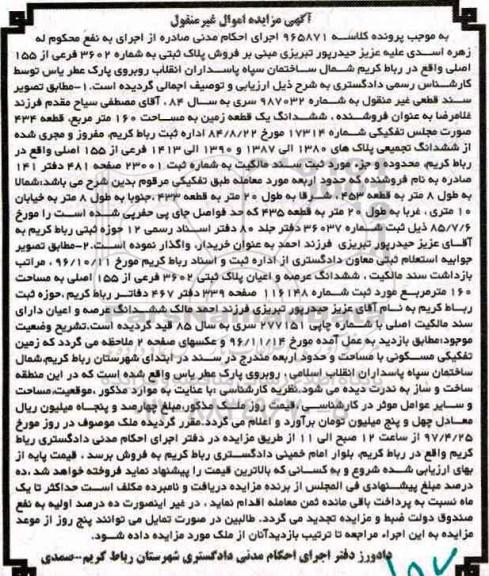 آگهی مزایده اموال غیر منقول
به موجب پرونده کلاسه ۹۶۵۸۷۱ اجرای احکام مدنی صادره از اجرای به نفع محکوم له
زهره اسدی علیه عزیز حیدرپور تبریزی مبنی بر فروش پلاک ثبتی به شماره ۳۶۰۲ فرعی از ۱۵۵
اصلی واقع در رباط کریم شمال ساختمان سپاه پاسداران انقلاب روبروی پارک عطر یاس توسط
کارشناس رسمی دادگستری به شرح ذیل ارزیابی و توصیف اجمالی گردیده است.۱-مطابق تصویر
سند قطعی غیر منقول به شماره ۹۸۷۰۳۲ سری به سال ۸۴ ، آقای مصطفی سیاح مقدم فرزند
غلامرضا به عنوان فروشنده ، ششدانگ یک قطعه زمین به مساحت ۱۶۰ متر مربع، قطعه ۴۳۴
صورت مجلس تفکیکی شماره ۱۷۳۱۴ مورخ ۸۴/۸/۲۲ اداره ثبت رباط کریم، مفروز و مجری شده
از ششدانگ تجمیعی پلاک های ۱۳۸۰ الی ۱۳۸۷ و ۱۳۹۰ الی ۱۴۱۳ فرعی از ۱۵۵ اصلی واقع در
رباط کریم، محدوده و جزء مورد ثبت سند مالکیت به شماره ثبت ۲۳۰۰۱ صفحه ۴۸۱ دفتر ۱۴۱
صادره به نام فروشنده که حدود اربعه مورد معامله طبق تفکیکی مرقوم بدین شرح می باشد؛شمالا
به طول ۸ متر به قطعه ۴۵۳ ، شرقا به طول ۲۰ متر به قطعه ۴۳۳ ،جنوبا به طول ۸ متر به خیابان
۱۰ متری ، غربا به طول ۲۰ متر به قطعه ۴۳۵ که حد فواصل جای پی حفرپی شده است را مورخ
۸۵/۷/۶ ذیل ثبت شماره ۳۶۰۳۷ دفتر جلد ۸۰ دفتر اسناد رسمی ۱۲ حوزه ثبتی رباط کریم به
آقای عزیز حیدرپور تبریزی فرزند احمد به عنوان خریدار، واگذار نموده است.۲-مطابق تصویر
جوابیه استعلام ثبتی معاون دادگستری از اداره ثبت و اسناد رباط کریم مورخ ۹۶/۱۰/۱۱ ، مراتب
بازداشت سند مالکیت ، ششدانگ عرصه و اعیان پلاک ثبتی ۳۶۰۲ فرعی از ۱۵۵ اصلی به مساحت
۱۶۰ مترمربع مورد ثبت شماره ۱۱۶۱۴۸ صفحه ۳۳۹ دفتر ۴۶۷ دفاتر رباط کریم، حوزه ثبت
رباط کریم به نام آقای عزیز حیدرپور تبریزی فرزند احمد مالک ششدانگ عرصه و اعیان دارای
سند مالکیت اصلی با شماره چاپی ۲۷۷۱۵۱ سری به سال ۸۵ قید گردیده است.تشریح وضعیت
موجود؛مطابق بازدید به عمل آمده مورخ ۹۶/۱۱/۱۴ و عکسهای صفحه ۲ ملاحظه می گردد که زمین
تفکیکی مسکونی با مساحت و حدود اربعه مندرج در سند در ابتدای شهرستان رباط کریم،شمال
ساختمان سپاه پاسداران انقلاب اسلامی ، روبروی پارک عطر یاس واقع شده است که در این منطقه
ساخت و ساز به ندرت دیده می شود.نظریه کارشناسی ؛با عنایت به موارد مذکور ،موقعیت،مساحت
و سایر عوامل موثر در کارشناسی ،قیمت روز ملک مذکور،مبلغ چهارصد و پنجاه میلیون ریال
معادل چهل و پنج میلیون تومان برآورد و اعلام می گردد.مقرر گردیده ملک موصوف در روز مورخ
۹۷/۴/۲۵ از ساعت ۱۲ صبح الی ۱۱ از طریق مزایده در دفتر اجرای احکام مدنی دادگستری رباط
کریم واقع در رباط کریم، بلوار امام خمینی دادگستری رباط کریم به فروش برسد ، قیمت پایه از
بهای ارزیابی شده شروع و به کسانی که بالاترین قیمت را پیشنهاد نماید فروخته خواهد شد ،ده
درصد مبلغ پیشنهادی فی المجلس از برنده مزایده دریافت و نامبرده مکلف است حداکثر تا یک
ماه نسبت به پرداخت باقی مانده ثمن معامله اقدام نماید ، در غیر اینصورت ده درصد اولیه به نفع
صندوق دولت ضبط و مزایده تجدید می گردد. طالبین در صورت تمایل می توانند پنج روز از موعد
مزایده به این اجراء مراجعه تا ترتیب بازدیدآنان از ملک مورد مزایده داده شود.
دادورز دفتر اجرای احکام مدنی دادگستری شهرستان رباط کریم--صمدی